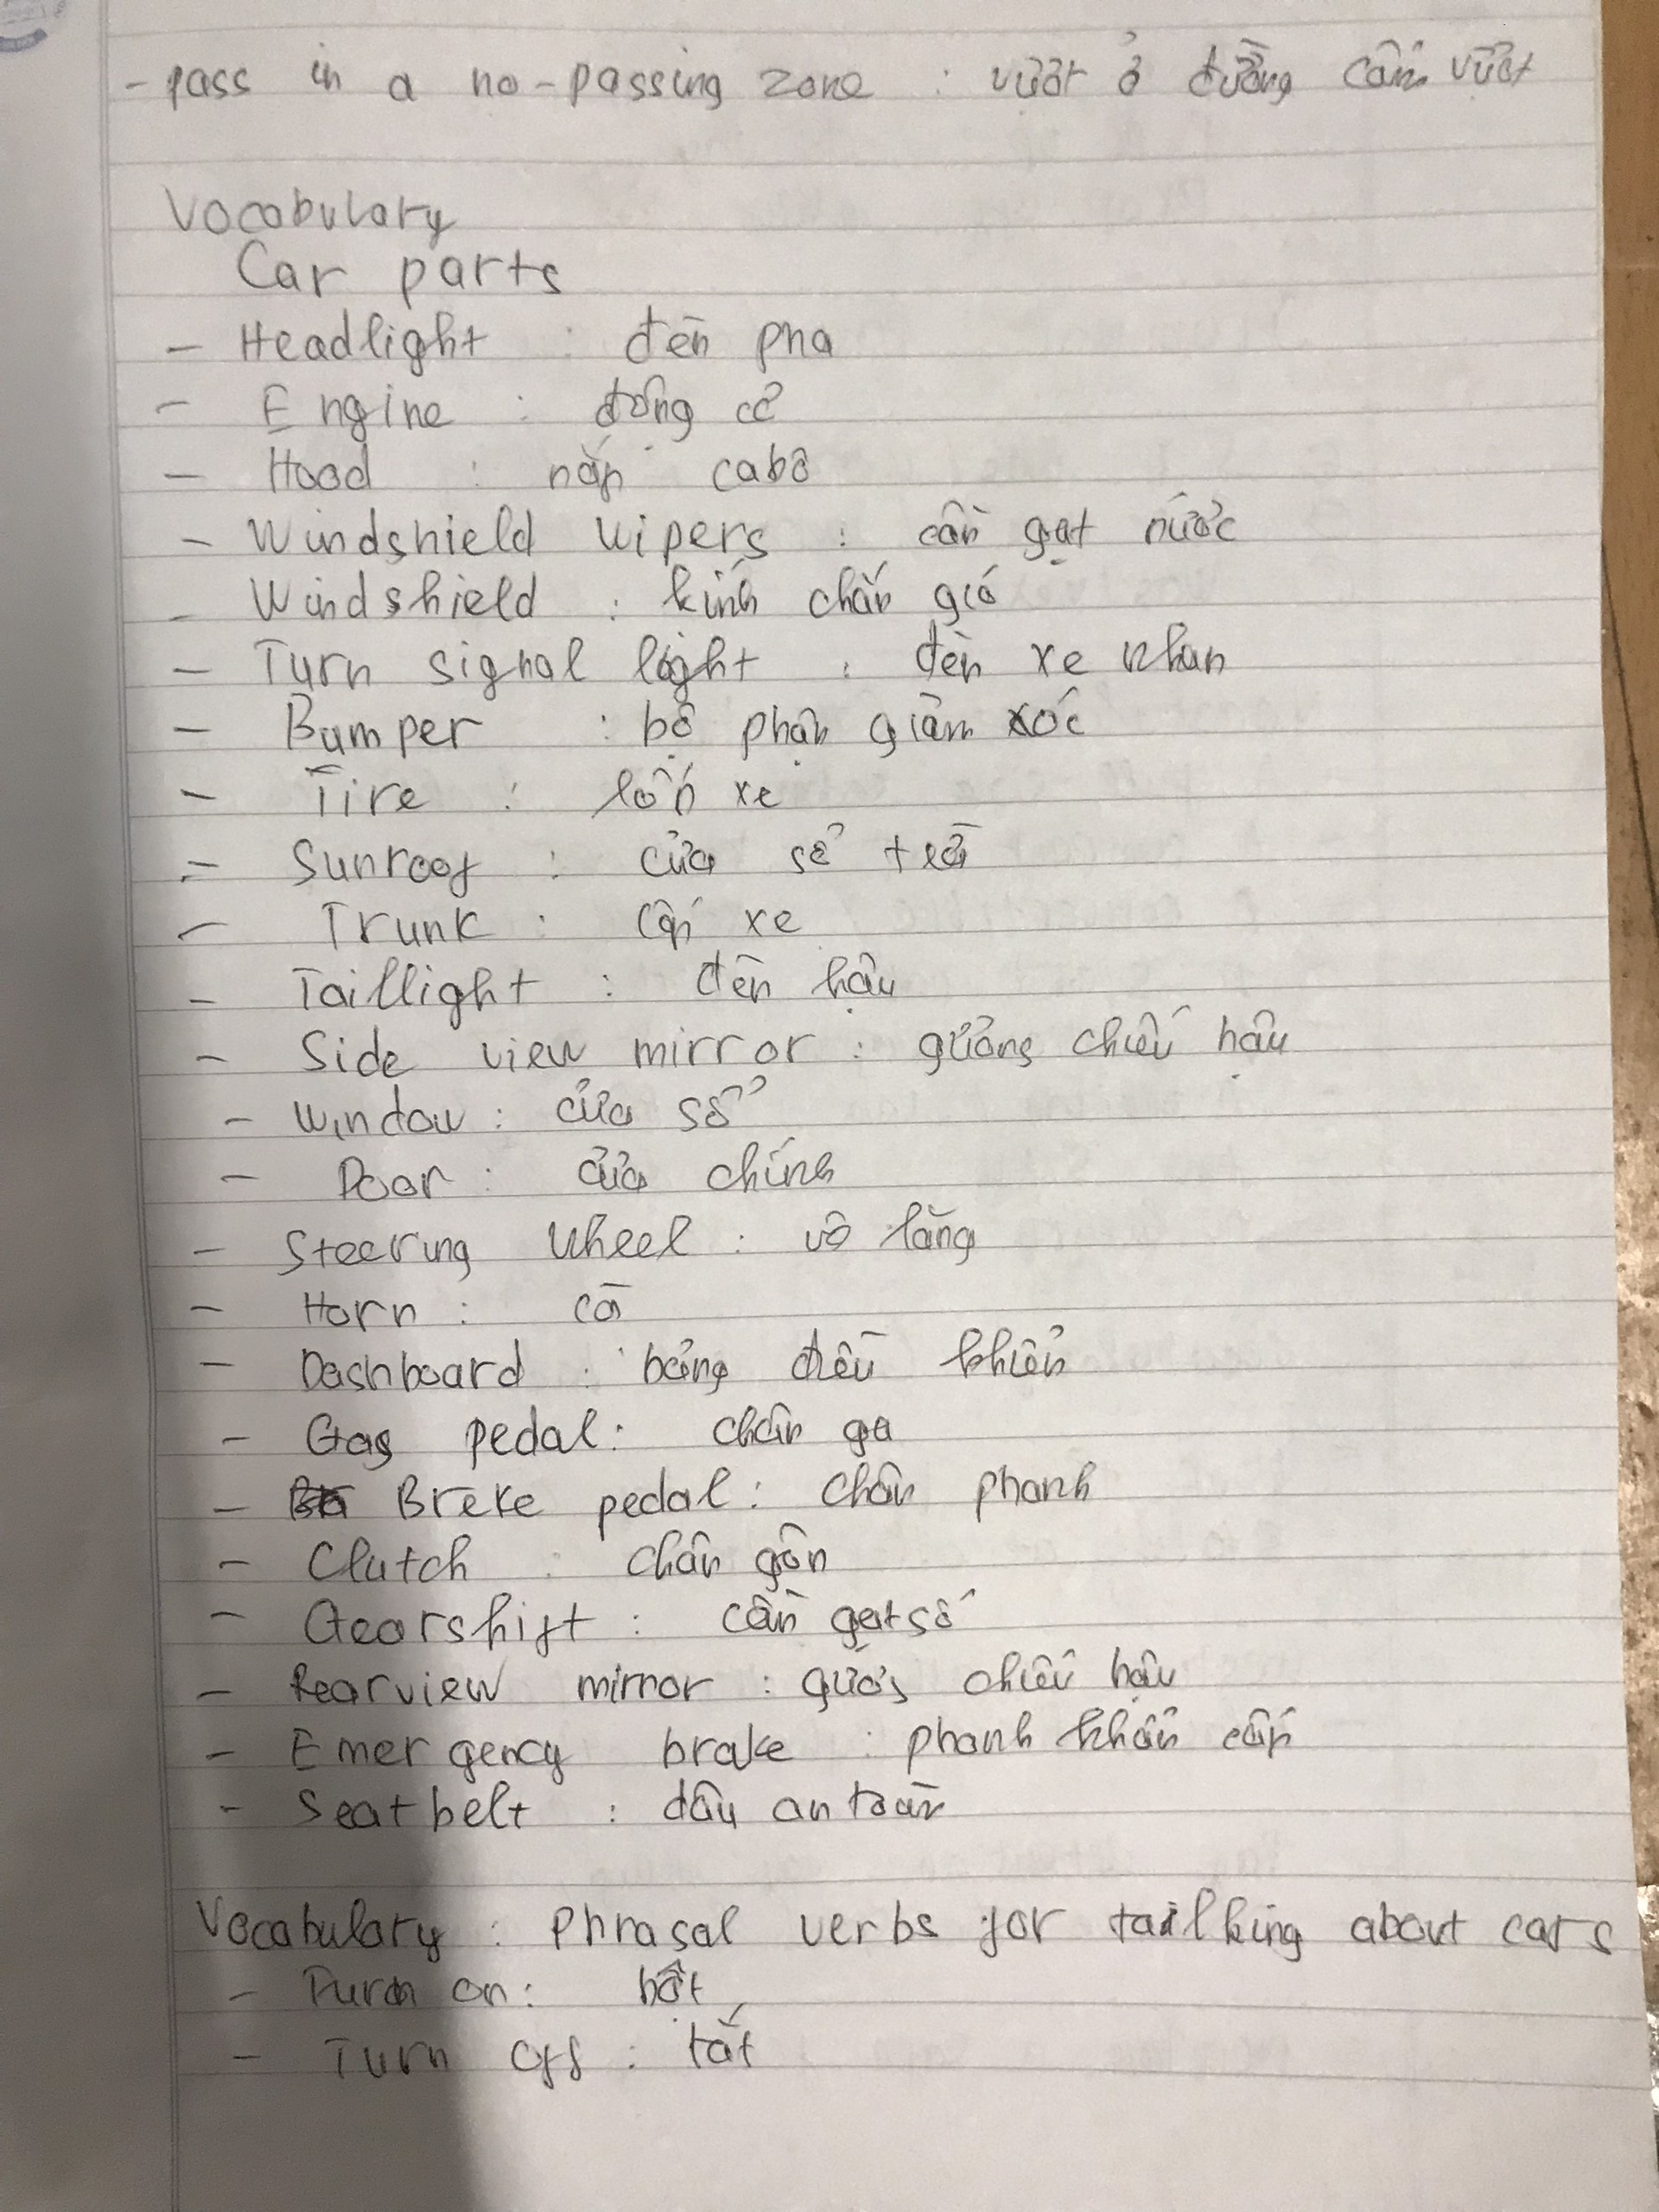 - pass in a no-passing zone : vượt ở đường cấm vượt
Vocabulary
Car parts
- Headlight : đèn pha
- Engine : động cơ
- Hood : nắp cabô
- Windshield wipers : cần gạt nước
- Windshield : kính chắn gió
- Turn signal light : đèn xe nhan
- Bumper : bộ phận giảm xóc
- Tire : lốp xe
- Sunroof : cửa sổ trời
- Trunk : cốp xe
- Taillight : đèn hậu
- Side view mirror : gương chiếu hậu
- Window : cửa sổ
- Door : cửa chính
- Steering wheel : vô lăng
- Horn : còi
- Dashboard : bảng điều khiển
- Gas pedal : chân ga
- Breke pedal : chân phanh
- Clutch : chân gôn
- Gearshift : cần gạt số
- Rearview mirror : gương chiếu hậu
- Emergency brake : phanh khẩn cấp
- Seatbelt : dây an toàn
Vocabulary : Phrasal verbs for tailking about cars
- Turn on : bật
- Turn off : tắt